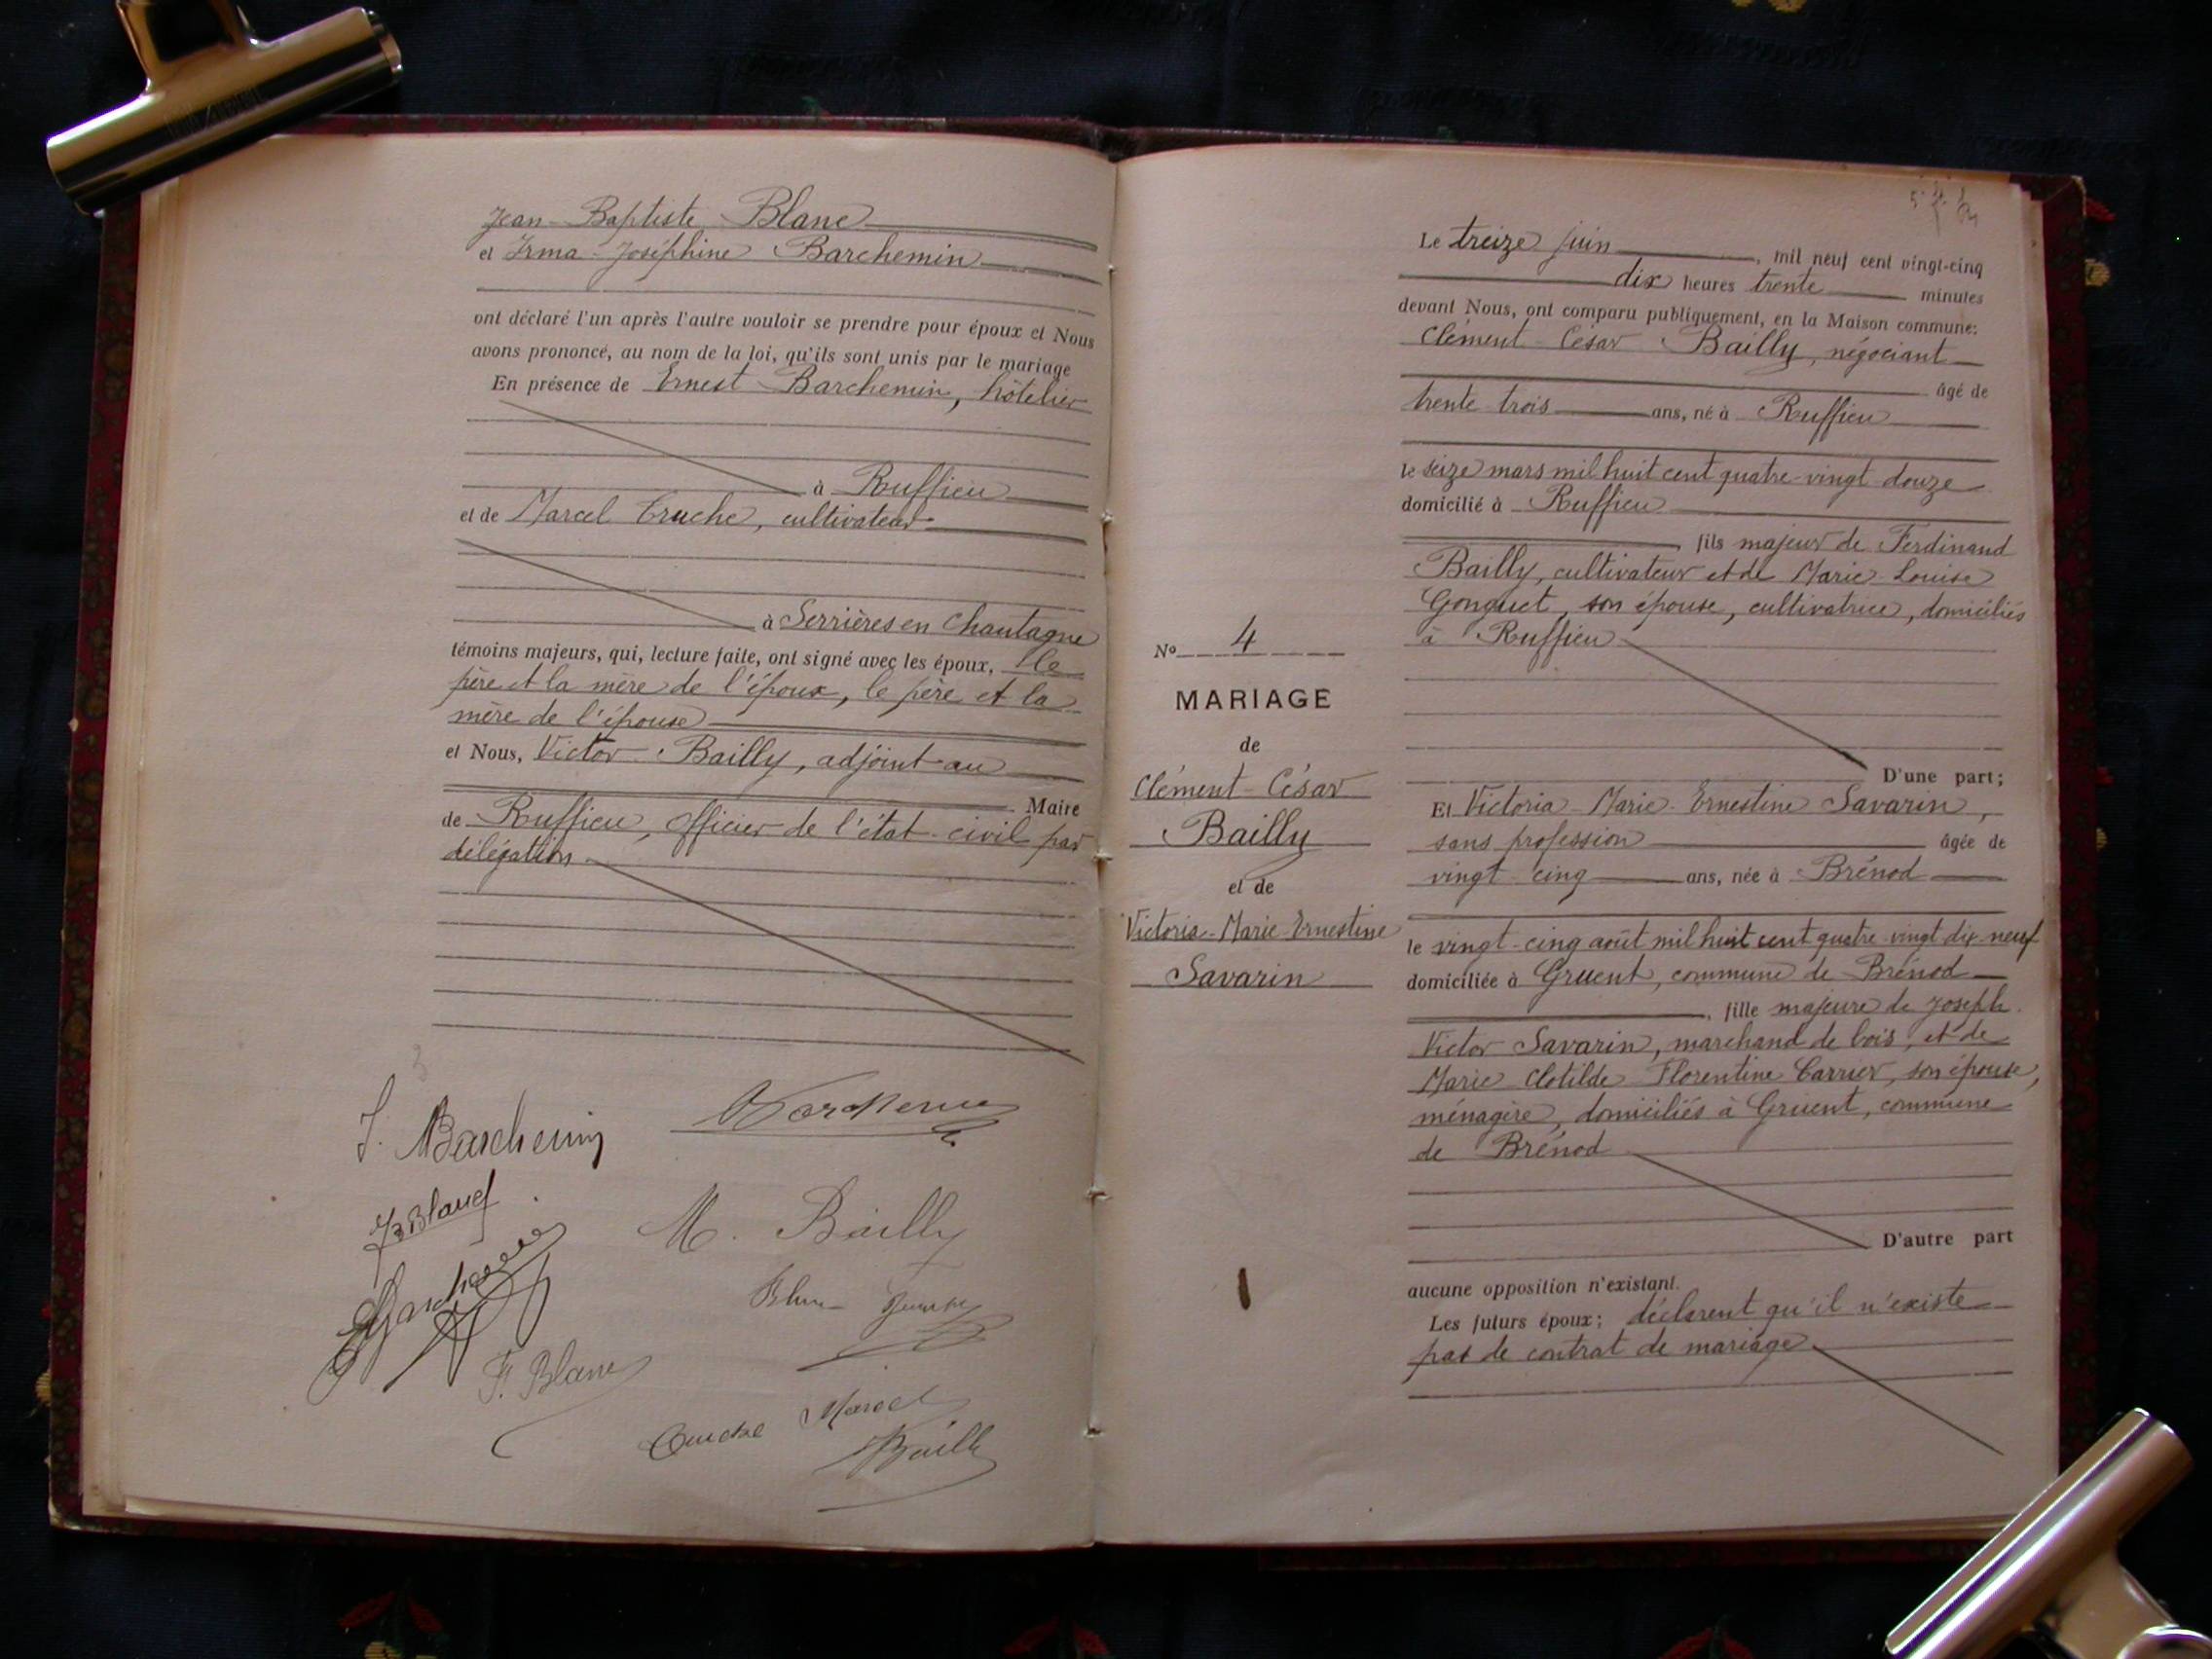 Jean-Baptiste Blanc
et Irma-Joséphine Barchemin
ont déclaré l'un après l'autre vouloir se prendre pour époux et Nous
avons prononcé, au nom de la loi, qu'ils sont unis par le mariage
En présence de Ernest Barchemin, hôtelier
à Ruffieu
et de Marcel Cruche, cultivateur
à Serrières en Chautagne
témoins majeurs, qui, lecture faite, ont signé avec les époux, le
père et la mère de l'époux, le père et la
mère de l'épouse
et Nous, Victor Bailly, adjoint au
Maire
de Ruffieu, officier de l'état-civil par
délégation
J. Barchemin
JB Blanc
M. Bailly
F. Blanc
Marcel
Bailly
Nº 4
MARIAGE
de
Clément-César
Bailly
et de
Victoria-Marie-Ernestine
Savarin
Le treize juin, mil neuf cent vingt-cinq
dix heures trente minutes
devant Nous, ont comparu publiquement, en la Maison commune:
Clément-César Bailly, négociant
âgé de
trente-trois ans, né à Ruffieu
le seize mars mil huit cent quatre-vingt-douze
domicilié à Ruffieu
, fils majeur de Ferdinand
Bailly, cultivateur et de Marie-Louise
Gonguet, son épouse, cultivatrice, domiciliés
à Ruffieu
D'une part;
Et Victoria-Marie-Ernestine Savarin,
sans profession âgée de
vingt-cinq ans, née à Brénod
le vingt-cinq août mil huit cent quatre-vingt-dix-neuf
domiciliée à Gruent, commune de Brénod
, fille majeure de Joseph
Victor Savarin, marchand de bois, et de
Marie Clotilde Florentine Carrier, son épouse,
ménagère, domiciliés à Gruent, commune
de Brénod
D'autre part
aucune opposition n'existant.
Les futurs époux; déclarent qu'il n'existe
pas de contrat de mariage